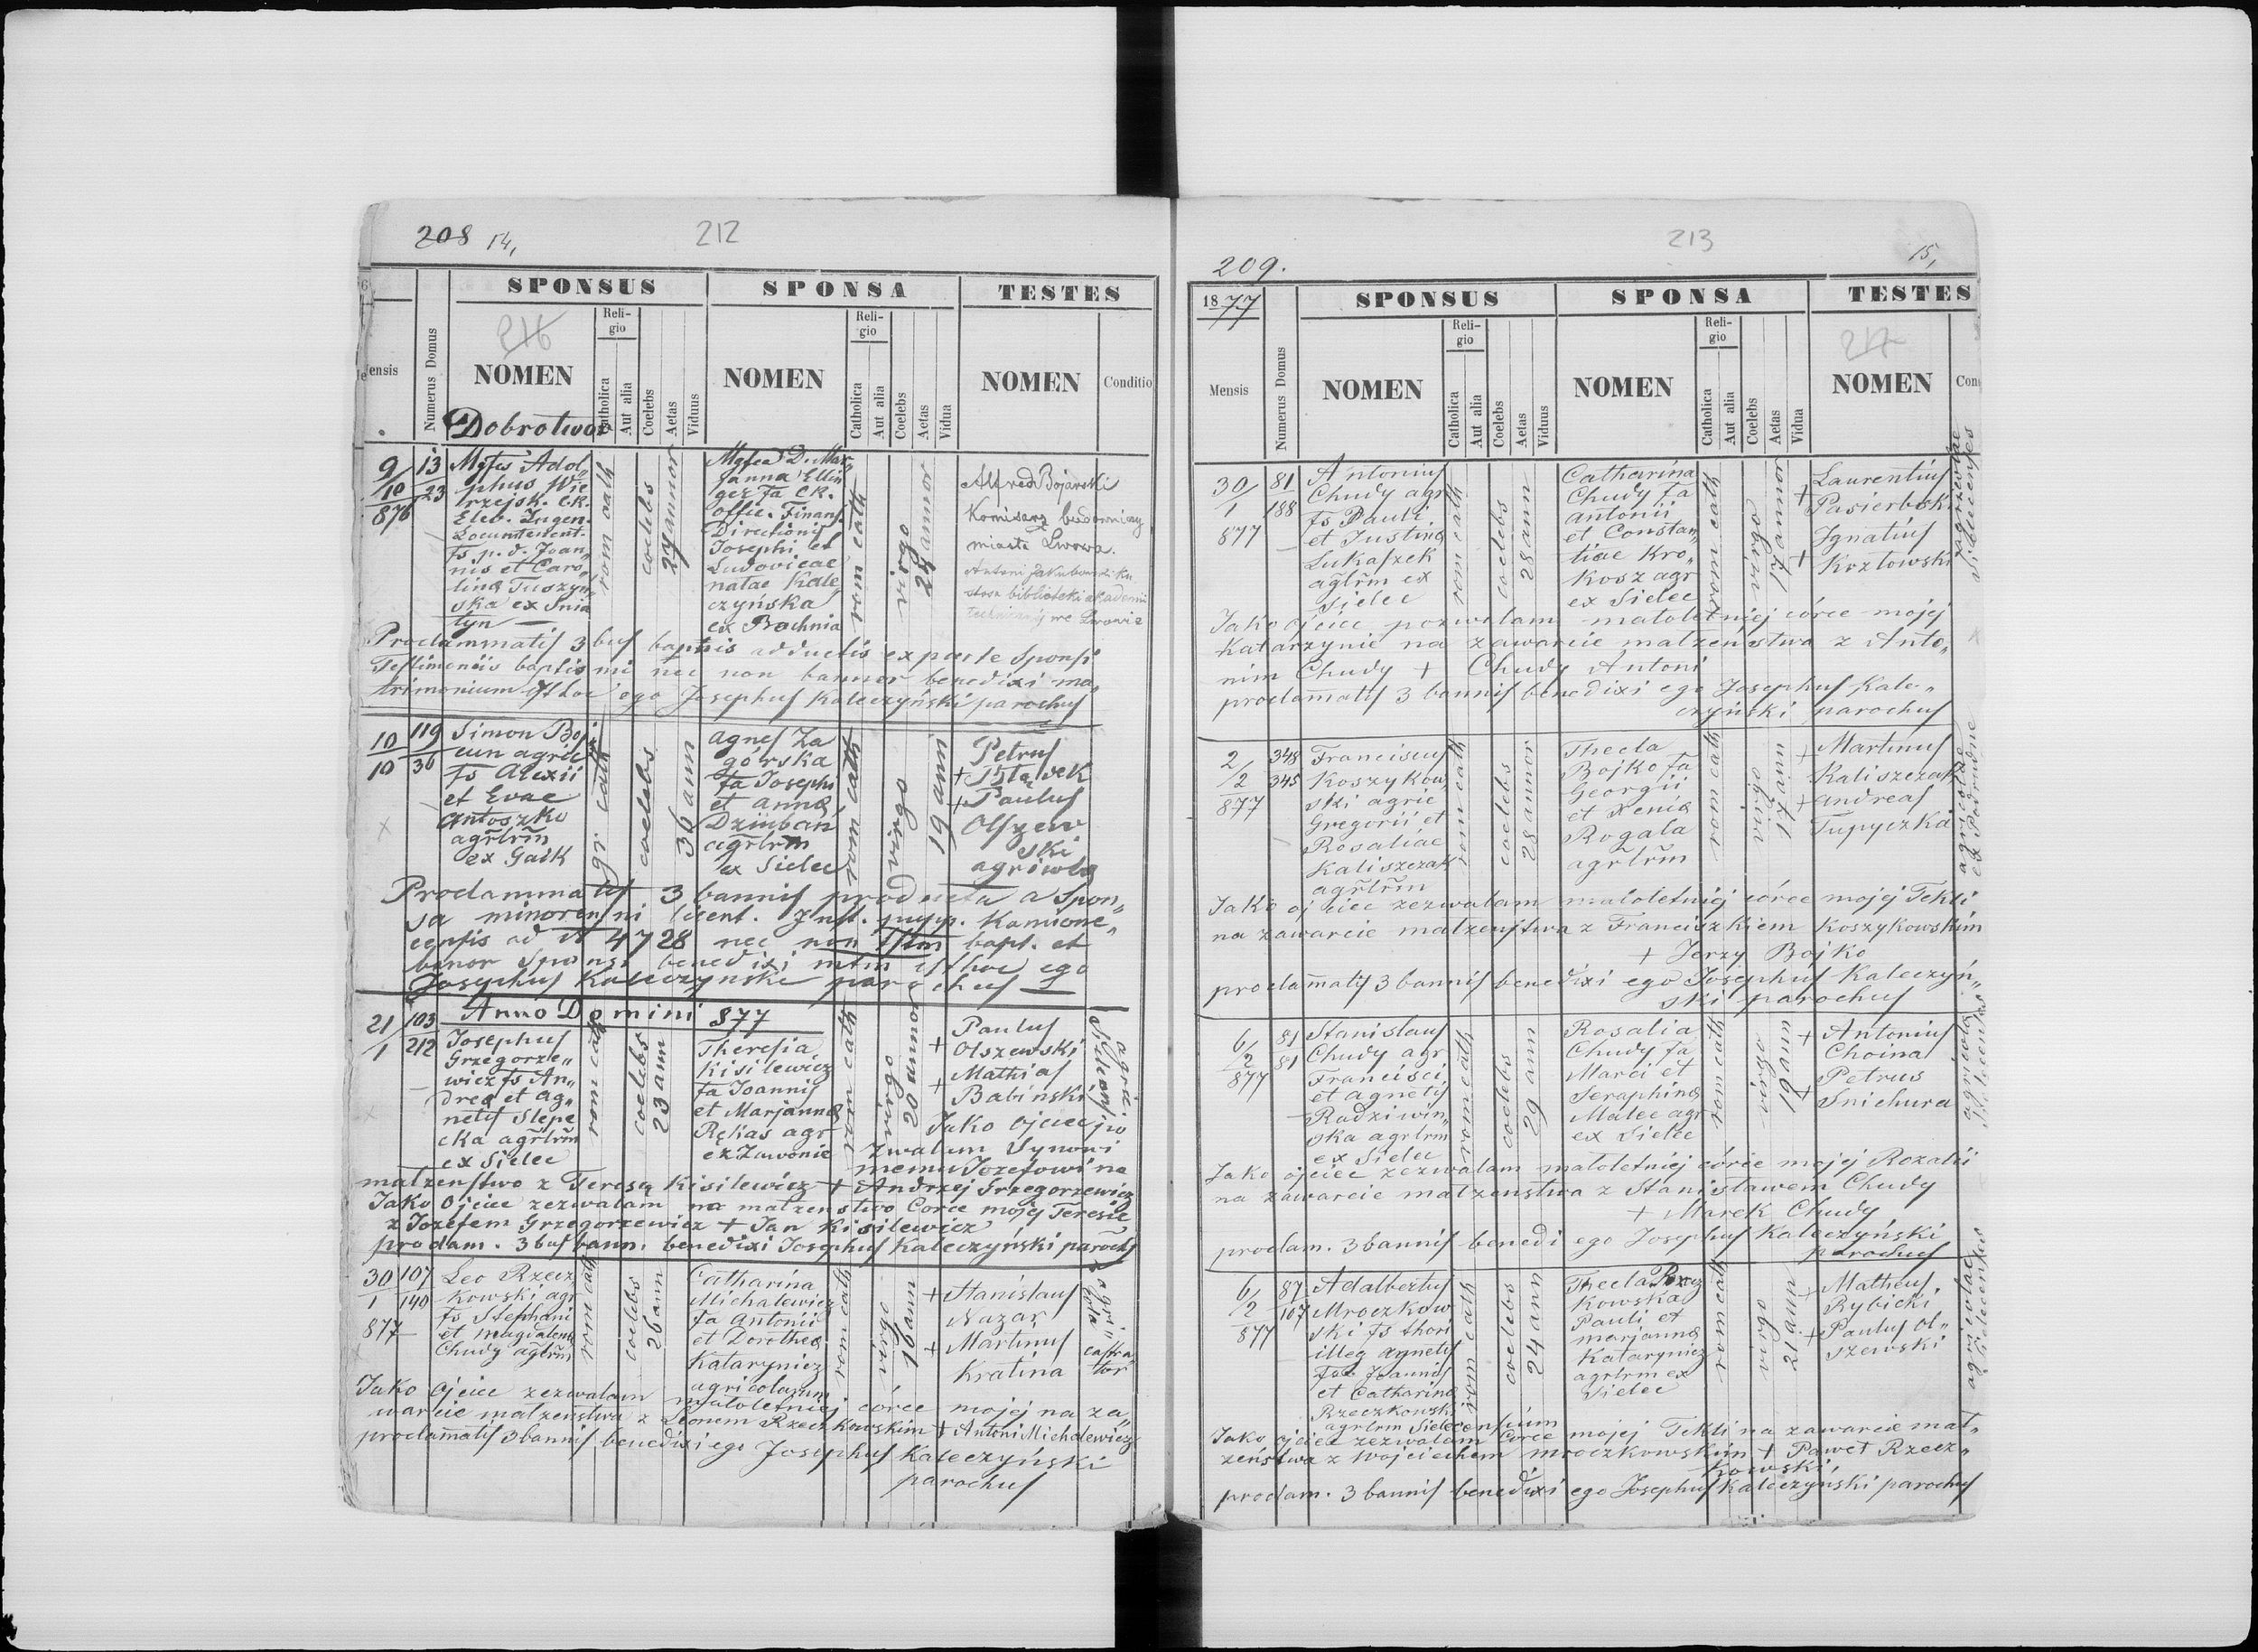 208 14,
212
SPONSUS
SPONSA
TESTES
216
Religio
Religio
ensis
Numerus Domus
NOMEN
Catholica
Aut alia
Coelebs
Aetas
Viduus
NOMEN
Catholica
Aut alia
Coelebs
Aetas
Vidua
NOMEN
Conditio
Dobrotwor
9/10 876
13
23
Adol„
phus Wie
rzejsk. CK.
Elev. Ingen.
Locumtenent.
fs p. d. Joan„
nis et Caro„
linæ Tuszyń„
ska ex Snia
tyn —
rom cath
coelebs
27 annor
Mar„
janna Ellin
ger fa CK.
offic. Finans.
Directionis
Josephi et
Ludovicae
natae Kale
czyńska
ex Bochnia
rom cath
virgo
28 annor
Alfred Bojarski
Komisarz budowniczy
miasta Lwowa.
Antoni Jakubowski ku
stosz biblioteki akademii
technicznej we Lwowie
Proclammatis 3bus adductis ex parte Sponsi
Testimoniis baptismi nec non bannor benedixi ma„
trimonium isthoc ego Josephus Kaleczyński parochus
10/10
119
36
Simon Boj
cun agric
fs Alexii
et Evae
Antoszko
agrlrm
ex Gaik
gr cath
coelebs
36 ann
Agnes Za
górska
fa Josephi
et Annæ
Dziuban
agrlrm
ex Sielec
rom cath
virgo
19 ann
Petrus
+
Paulus
+ Olszew
ski
agricolæ
Proclammatis 3 bannis producta a Spon„
sa minorenni licent. Inst. pupp. Kamione„
censis ad N 4728 nec non tstm bapt. et
banor Sponsi benedixi mtm isthoc ego
Josephus Kaleczyński parochus
Anno Domini 877
21/1
103
212
Josephus
Grzegorze„
wicz fs An„
dreæ et Ag„
netis Slepe
cka agrlrm
ex Sielec
rom cath
coelebs
23 ann
Theresia
Kisilewicz
fa Joannis
et Marjannæ
Rękas agr
ex Zawonie
rom cath
virgo
20 annor
Paulus
+ Olszewski
Mathias
+ Babiński
agric.
Jako Ojciec po
zwalam Synowi
memu Jozefowi na
malzenstwo z Teresą Kisilewicz + Andrzej Grzegorzewicz
Jako Ojciec zezwalam na malzenstwo Corce mojej Teresie
z Jozefem Grzegorzewicz + Jan Kisilewicz
proclam. 3bus bann. benedixi Josephus Kaleczyński parochs
30/1 877
107
140
Leo Rzecz
kowski agr
fs Stephani
et Magdalenæ
Chudy agrlrm
rom cath
coelebs
26 ann
Catharina
Michalewicz
fa Antonii
et Dorotheæ
Katarynicz
agricolarum
rom cath
virgo
16 ann
+ Stanislaus
Nazar
+ Martinus
Kratina
agri„
cola
castra„
tor
Jako Ojciec zezwalam małoletniej córce mojej na za„
warcie malzenstwa z Leonem Rzeczkowskim + Antoni Michalewicz
proclamatis 3 bannis benedixi ego Josephus Kaleczyński
parochus
209.
213
15,
1877
SPONSUS
SPONSA
TESTES
217
Religio
Religio
Mensis
Numerus Domus
NOMEN
Catholica
Aut alia
Coelebs
Aetas
Viduus
NOMEN
Catholica
Aut alia
Coelebs
Aetas
Vidua
NOMEN
Con
30/1 877
81
188
Antonius
Chudy agr
fs Pauli
et Justinæ
Lukaszek
agrlrm ex
Sielec
rom cath
coelebs
28 ann
Catharina
Chudy fa
Antonii
et Constan„
tiae Kro„
kosz agr
ex Sielec
rom cath
virgo
17 annor
Laurentius
+ Pasierbski
Ignatius
+ Kozłowski
agricolae
Sielecenses
Jako ojciec pozwalam małoletniej córce mojej
Katarzynie na zawarcie malzenstwa z Anto„
nim Chudy + Chudy Antoni
proclamatis 3 bannis benedixi ego Josephus Kale„
czyński parochus
2/2 877
348
345
Franciscus
Koszykow
ski agric
Gregorii et
Rosaliae
Kaliszczak
agrlrm
rom cath
coelebs
28 annor
Thecla
Bojko fa
Georgii
et Xeniæ
Rogala
agrlrm
rom cath
virgo
17 ann
+ Martinus
Kaliszczak
+ Andreas
Tupyczka
agricolae
Jako ojciec zezwalam małoletniej córce mojej Tekli
na zawarcie malzenstwa z Franciszkiem Koszykowskim
+ Jerzy Bojko
proclamatis 3 bannis benedixi ego Josephus Kaleczyń„
ski parochus
6/2 877
81
81
Stanislaus
Chudy agr
Francisci
et Agnetis
Radziwin„
ska agrlrm
ex Sielec
rom cath
coelebs
29 ann
Rosalia
Chudy fa
Marci et
Seraphinæ
Malec agr
ex Sielec
rom cath
virgo
19 ann
+ Antonius
Choina
Petrus
+ Snichura
agricolæ
Jako ojciec zezwalam małoletniej córce mojej Rozalii
na zawarcie malzenstwa z Stanisławem Chudy
+ Marek Chudy
proclam. 3 bannis benedi ego Josephus Kaleczyński
parochus
6/2 877
87
107
Adalbertus
Mroczkow
ski fs thori
illeg Agnetis
Joannis
et Catharinæ
Rzeczkowski
agrlrm Sielecensium
rom cath
coelebs
24 ann
Thecla Rzecz
kowska
Pauli et
Marjannæ
Katarynicz
agrlrm ex
Sielec
rom cath
virgo
21 ann
+ Matheus
Rybicki
+ Paulus Ol„
szewski
agricolae
Sielecenses
Jako ojciec zezwalam Córce mojej Tekli na zawarcie mał„
zeństwa z Wojciechem Mroczkowskim + Paweł Rzecz„
kowski,
proclam. 3 bannis benedixi ego Josephus Kaleczyński parochus